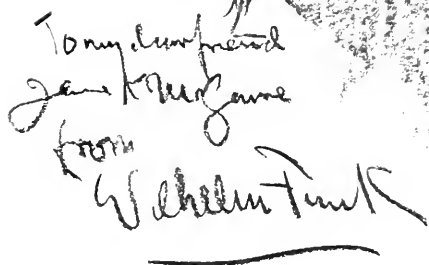 To my dear friend
James K McGuire
from
Wilhelm Funk